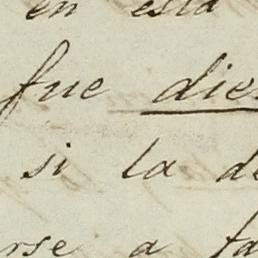 en esta
fue die
si la de
rse a fa